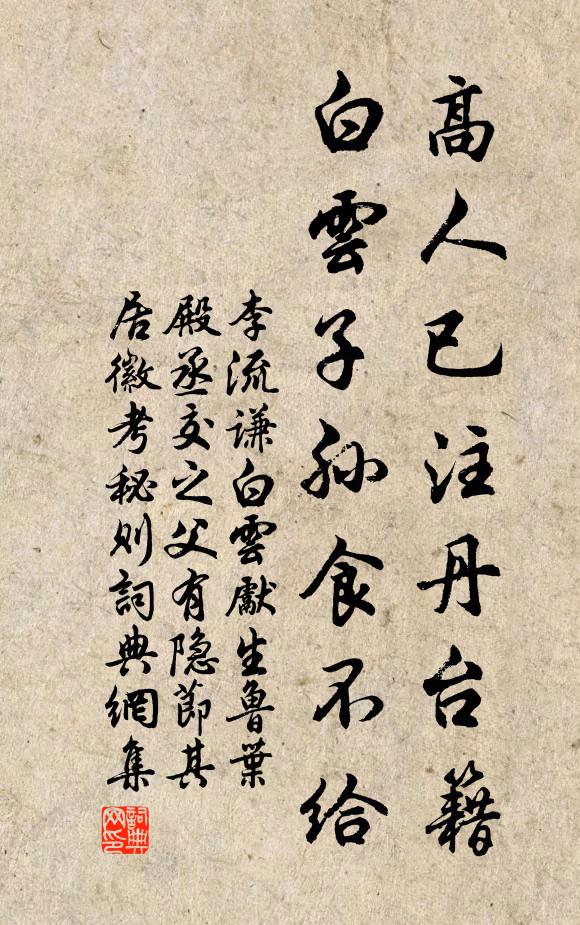 高人已注丹台籍
白雲子孫食不给
李流谦白雲獻生鲁葉
殿丞交之父有隐節其
居徽考秘则詞典網集
詞典
网印